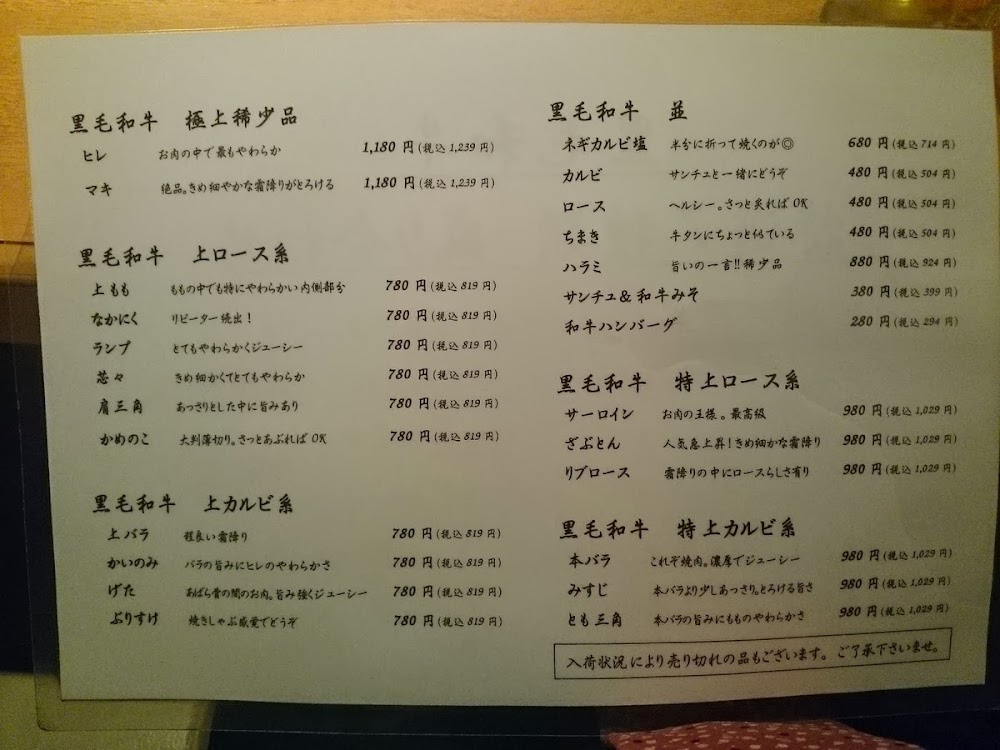 黒毛和牛 極上稀少品
ヒレ お肉の中で最もやわらか 1,180 円 (税込 1,239 円)
マキ 絶品。きめ細やかな霜降りがとろける 1,180 円 (税込 1,239 円)
黒毛和牛 上ロース系
上もも ももの中でも特にやわらかい内側部分 780 円 (税込 819 円)
なかにく リピーター続出! 780 円 (税込 819 円)
ランプ とてもやわらかくジューシー 780 円 (税込 819 円)
芯々 きめ細かくてとてもやわらか 780 円 (税込 819 円)
肩三角 あっさりとした中に旨みあり 780 円 (税込 819 円)
かめのこ 大判薄切り。さっとあぶれば OK 780 円 (税込 819 円)
黒毛和牛 上カルビ系
上バラ 程良い霜降り 780 円 (税込 819 円)
かいのみ バラの旨みにヒレのやわらかさ 780 円 (税込 819 円)
げた あばら骨の間のお肉。旨み強くジューシー 780 円 (税込 819 円)
ぶりすけ 焼きしゃぶ感覚でどうぞ 780 円 (税込 819 円)
黒毛和牛 並
ネギカルビ塩 半分に折って焼くのが◎ 680 円 (税込 714 円)
カルビ サンチュと一緒にどうぞ 480 円 (税込 504 円)
ロース ヘルシー。さっと炙れば OK 480 円 (税込 504 円)
ちまき 牛タンにちょっと似ている 480 円 (税込 504 円)
ハラミ 旨いの一言!!稀少品 880 円 (税込 924 円)
サンチュ&和牛みそ 380 円 (税込 399 円)
和牛ハンバーグ 280 円 (税込 294 円)
黒毛和牛 特上ロース系
サーロイン お肉の王様。最高級 980 円 (税込 1,029 円)
ざぶとん 人気急上昇!きめ細かな霜降り 980 円 (税込 1,029 円)
リブロース 霜降りの中にロースらしさ有り 980 円 (税込 1,029 円)
黒毛和牛 特上カルビ系
本バラ これぞ焼肉。濃厚でジューシー 980 円 (税込 1,029 円)
みすじ 本バラより少しあっさり。とろける旨さ 980 円 (税込 1,029 円)
とも三角 本バラの旨みにもものやわらかさ 980 円 (税込 1,029 円)
入荷状況により売り切れの品もございます。ご了承下さいませ。